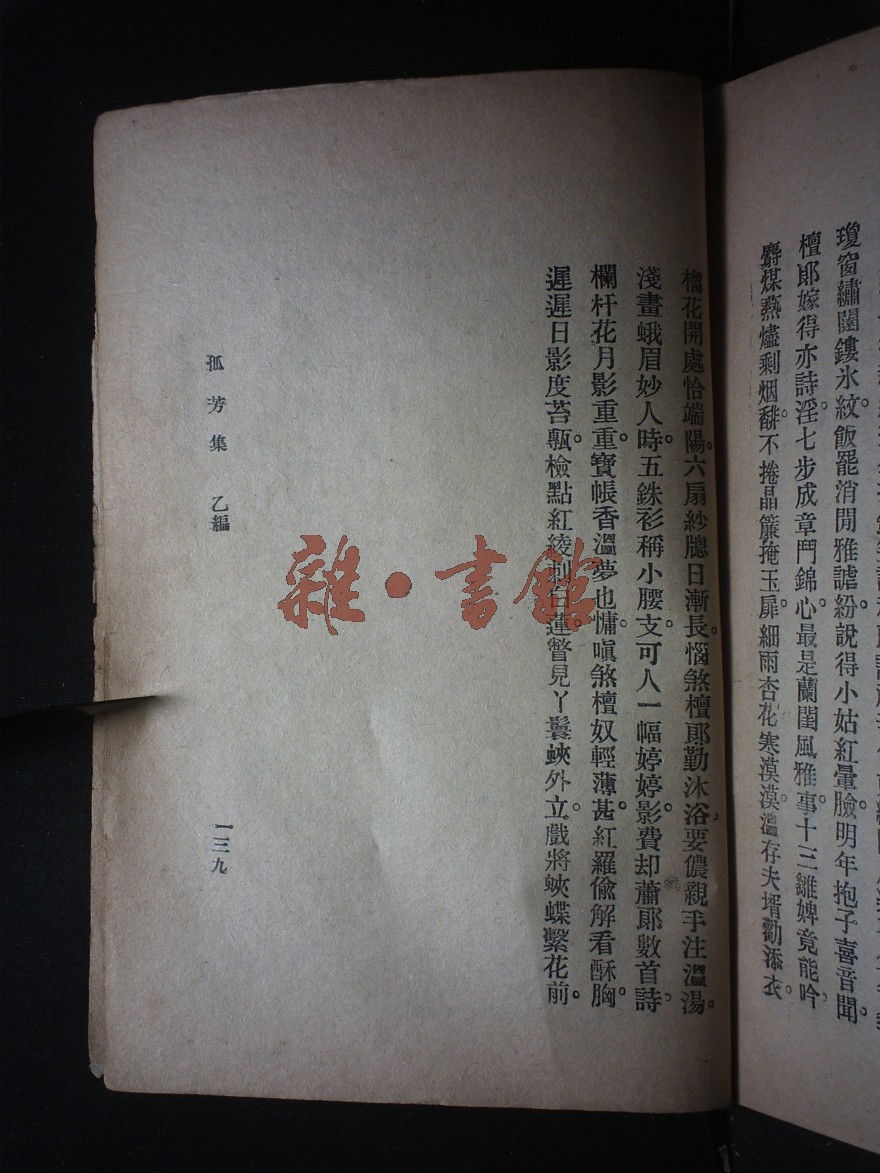 瓊窗繡闥鏤氷紋。飯罷消閒雅謔紛。說得小姑紅暈臉。明年抱子喜音聞。
檀郎嫁得亦詩淫。七步成章鬥錦心。最是蘭閨風雅事。十三雛婢竟能吟。
麝煤燕燼剩烟霏。不捲晶簾掩玉扉。細雨杏花寒漠漠。溫存夫壻勸添衣。
榴花開處恰端陽。六扇紗牕日漸長。惱煞檀郎勤沐浴。要儂親手注溫湯。
淺畫蛾眉妙人時。五銖衫稱小腰支。可人一幅婷婷影。費却蕭郎數首詩。
欄杆花月影重重。寶帳香溫夢也慵。嗔煞檀奴輕薄甚。紅羅偸解看酥胸。
遲遲日影度苔甎。檢點紅綾刺白蓮。瞥見丫鬟蛺外立。戲將蛺蝶繫花前。
孤芳集 乙編
一三九
雜·書館